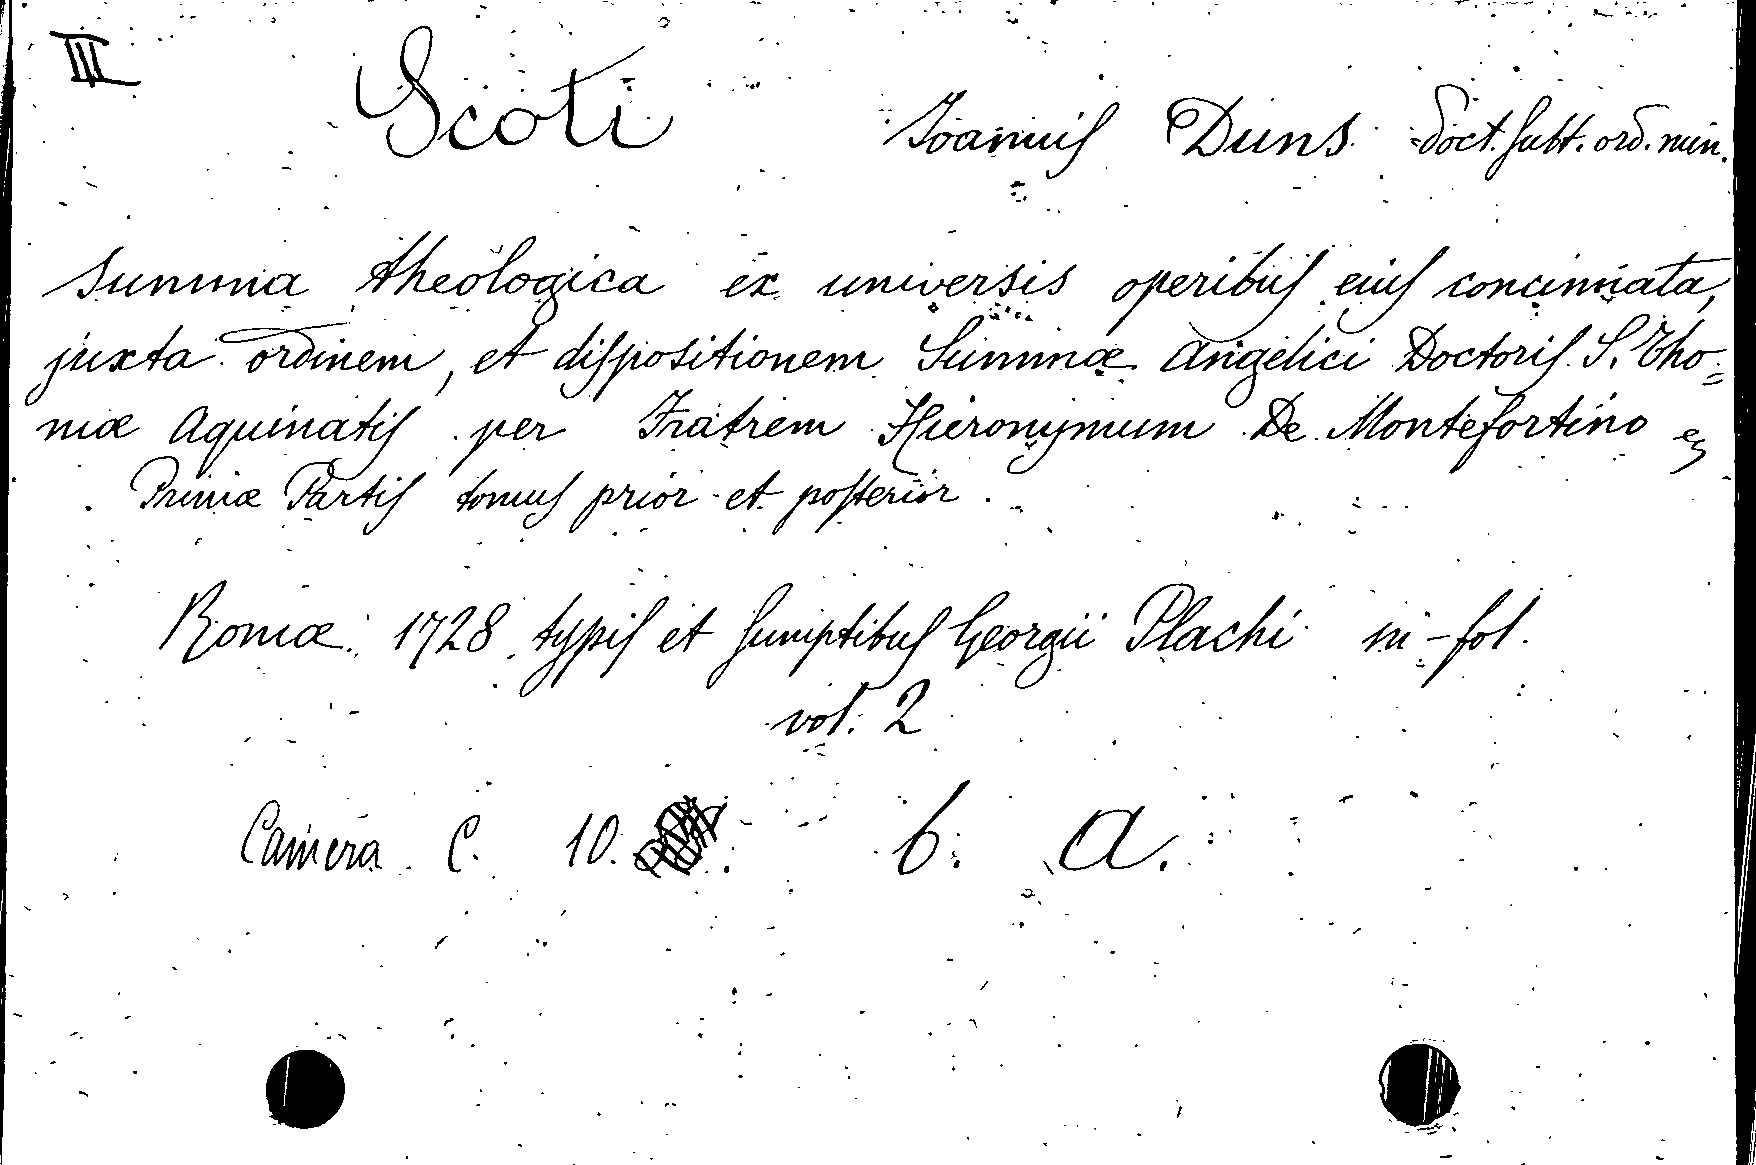 III Scoti Joannis Duns doct. subt. ord. min.
Summa theologica ex universis operibus eius concinnata,
juxta ordinem, et dispositionem Summæ Angelici Doctoris S. Tho=
mæ Aquinatis per Fratrem Hieronymum De Montefortino
Primæ Partis tomus prior et posterior.
Romæ 1728 typis et sumptibus Georgii Plachi in-fol.
vol. 2
Camera C. 10. b. a.